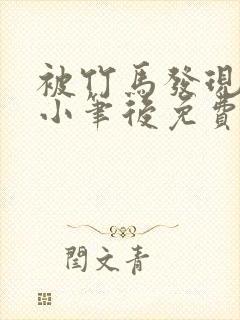 被竹馬發現
小筆後免費
閏文青